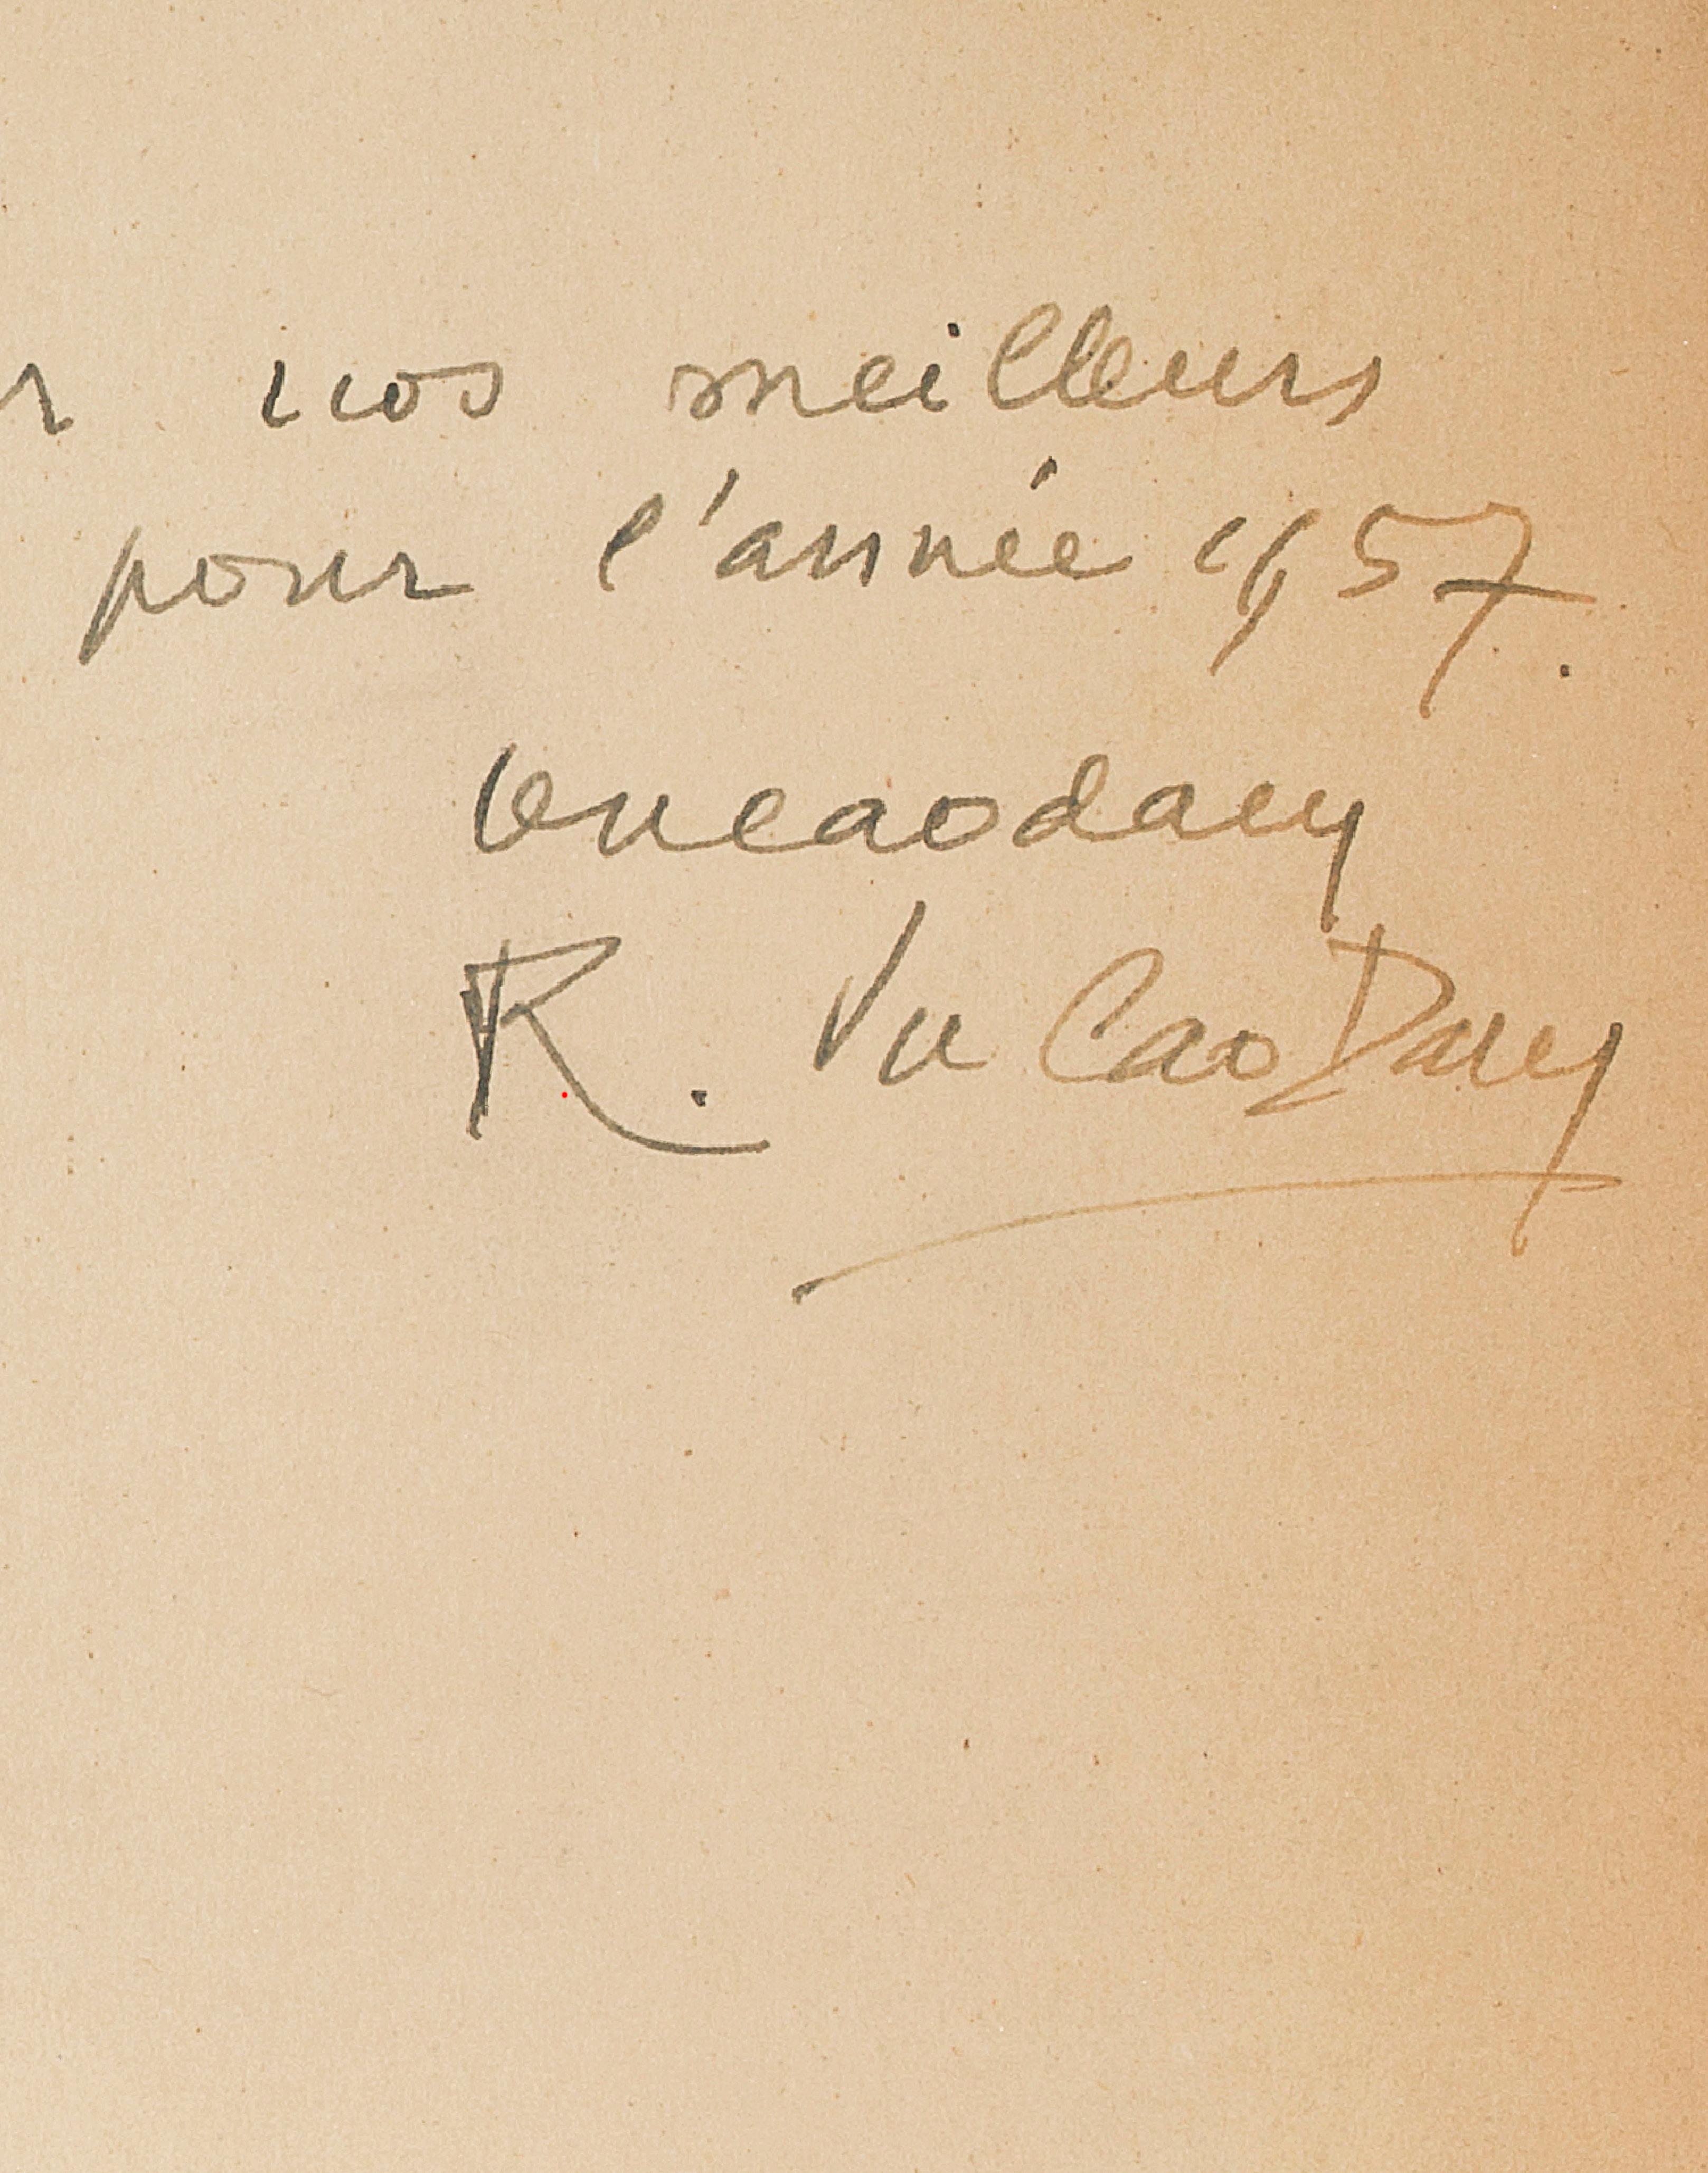 r nos meilleurs
pour l'année 1957.
vucaodam
R. Vu Cao Dam